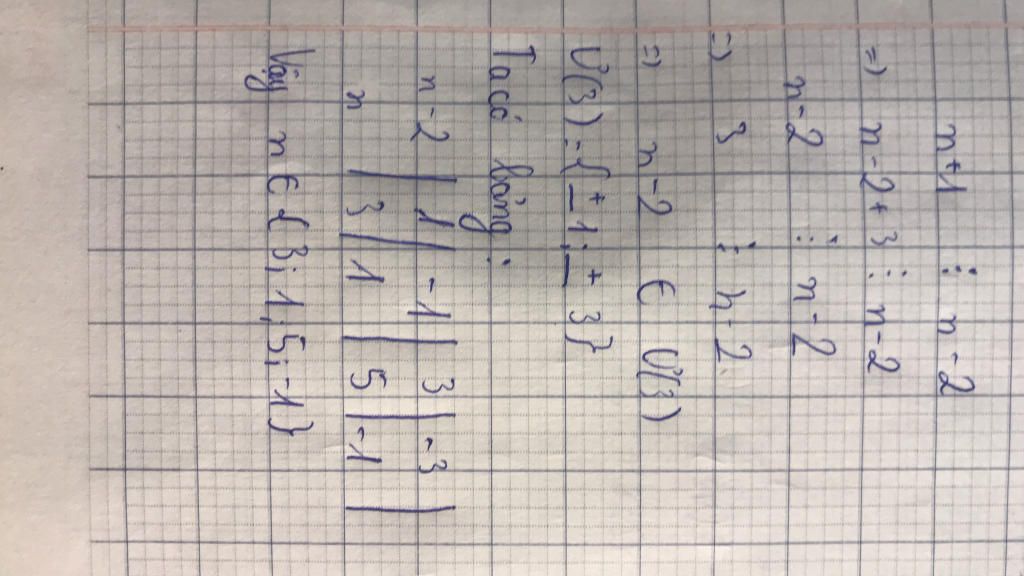 n+1 ⋮ n-2
=) n-2+3 ⋮ n-2
n-2 ⋮ n-2
=) 3 ⋮ n-2
=) n-2 ∈ Ư(3)
Ư(3)={±1; ±3}
Ta có bảng:
n-2 | 1 | -1 | 3 | -3 |
n | 3 | 1 | 5 | -1 |
Vậy n ∈ { 3; 1; 5; -1}